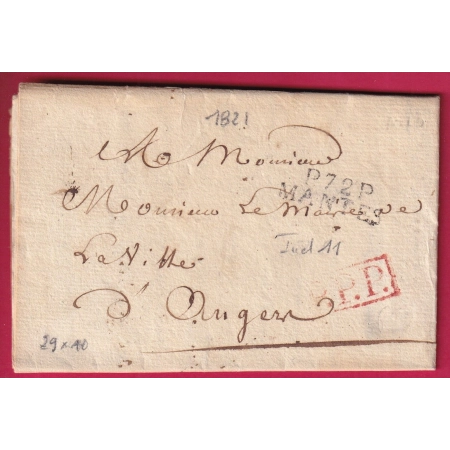 1821
A Monsieur
P72P
MANTES
Monsieur Le Maire de
La Ville
Ind 11
P.P.
d'Angers
29 x 10